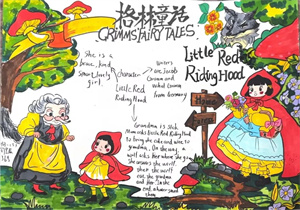 格林童话
GRIMMS'FAIRY TALES
Little Red
Riding Hood
She is a
brave, kind
smart, lovely
girl.
character
Little Red
Riding Hood
writers
are Jacob
Grimm and
Grimm
from Germany
Grandma is sick
Mum asks Little Red Riding Hood
to bring the cake and wine to
grandma. On the way, a
wolf asks her where she goes
She answers the wolf.
wolf
the grandma
and her.